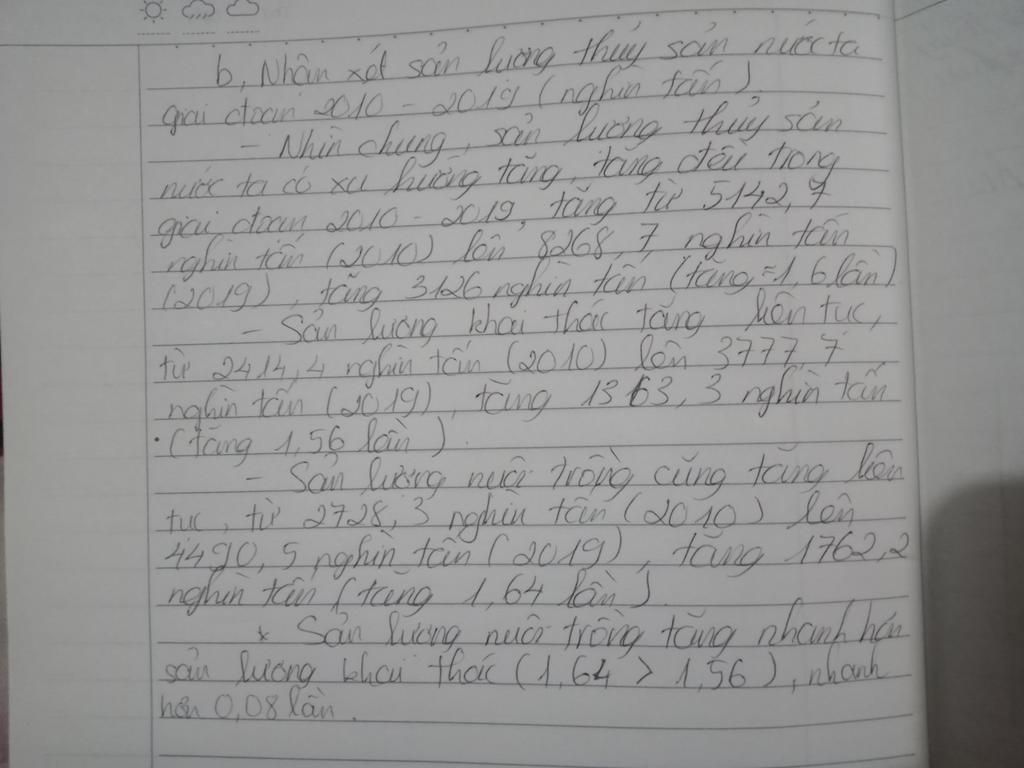 b, Nhận xét sản lượng thủy sản nước ta
giai đoạn 2010 - 2019 (nghìn tấn)
- Nhìn chung, sản lượng thủy sản
nước ta có xu hướng tăng, tăng đều trong
giai đoạn 2010 - 2019, tăng từ 5142,7
nghìn tấn (2010) lên 8268,7 nghìn tấn
(2019), tăng 3126 nghìn tấn (tăng ≈ 1,6 lần)
- Sản lượng khai thác tăng liên tục,
từ 2414,4 nghìn tấn (2010) lên 3777,7
nghìn tấn (2019), tăng 1363,3 nghìn tấn
(tăng 1,56 lần).
- Sản lượng nuôi trồng cũng tăng liên
tục, từ 2728,3 nghìn tấn (2010) lên
4490,5 nghìn tấn (2019), tăng 1762,2
nghìn tấn (tăng 1,64 lần).
* Sản lượng nuôi trồng tăng nhanh hơn
sản lượng khai thác (1,64 > 1,56), nhanh
hơn 0,08 lần.